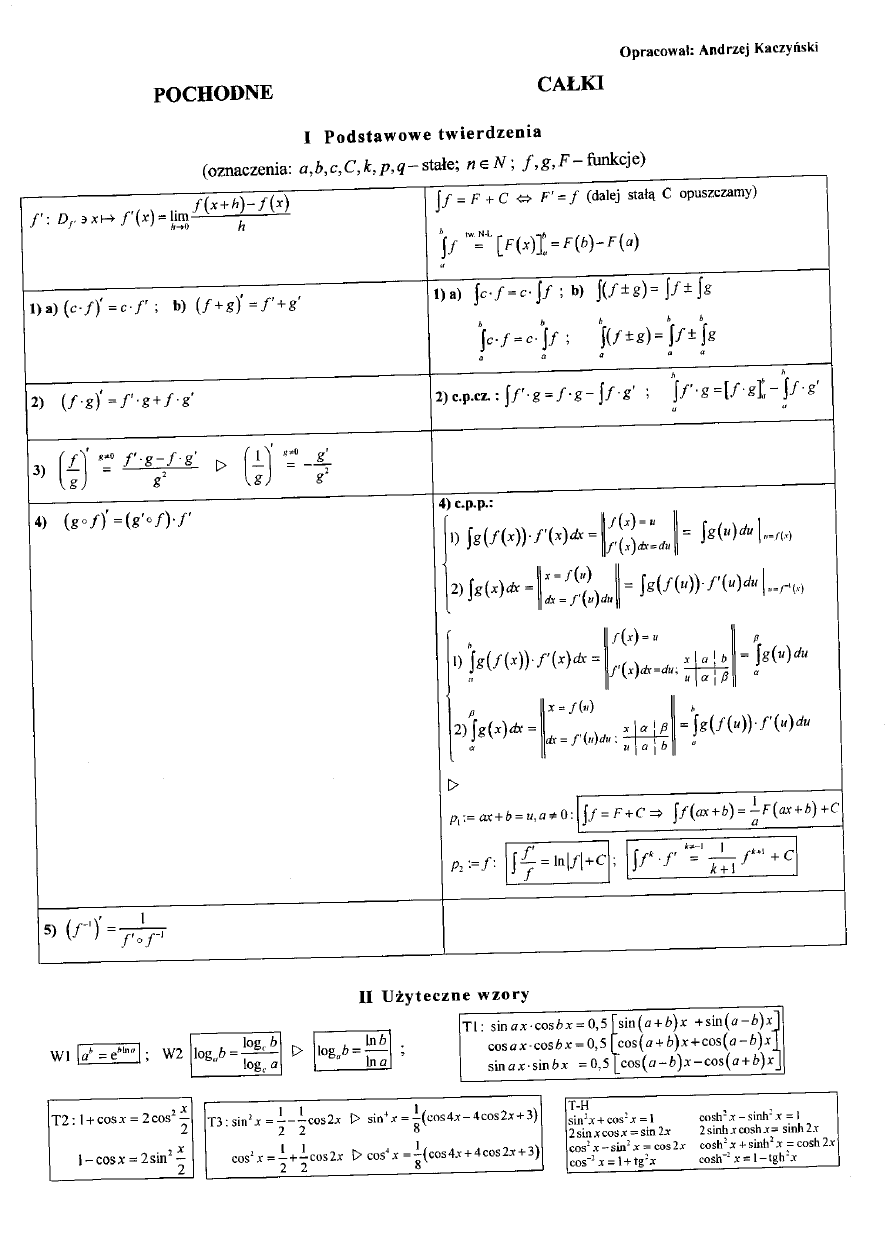 Opracował: Andrzej Kaczyński
POCHODNE
CAŁKI
I Podstawowe twierdzenia
(oznaczenia: a,b,c,C,k,p,q – stałe; n∈N ; f,g,F – funkcje)
f': D_f' ∋ x ↦ f'(x) = lim_{h→0} (f(x+h)−f(x))/h
∫f = F + C ⇔ F' = f (dalej stałą C opuszczamy)
∫_a^b f =^{tw. N-L} [F(x)]_a^b = F(b)−F(a)
1) a) (c·f)' = c·f' ; b) (f+g)' = f'+g'
1) a) ∫c·f = c·∫f ; b) ∫(f±g) = ∫f ± ∫g
∫_a^b c·f = c·∫_a^b f ; ∫_a^b (f±g) = ∫_a^b f ± ∫_a^b g
2) (f·g)' = f'·g + f·g'
2) c.p.cz. : ∫f'·g = f·g − ∫f·g' ; ∫_a^b f'·g = [f·g]_a^b − ∫_a^b f·g'
3) (f/g)' =^{g≠0} (f'·g − f·g')/g² ▷ (1/g)' =^{g≠0} −g'/g²
4) (g∘f)' = (g'∘f)·f'
4) c.p.p.:
1) ∫g(f(x))·f'(x)dx = ‖f(x) = u
f'(x)dx = du‖ = ∫g(u)du |_{u=f(x)}
2) ∫g(x)dx = ‖x = f(u)
dx = f'(u)du‖ = ∫g(f(u))·f'(u)du |_{u=f⁻¹(x)}
1) ∫_a^b g(f(x))·f'(x)dx = ‖f(x) = u
f'(x)dx = du; x | a | b
u | α | β‖ = ∫_α^β g(u)du
2) ∫_α^β g(x)dx = ‖x = f(u)
dx = f'(u)du ; x | α | β
u | a | b‖ = ∫_a^b g(f(u))·f'(u)du
▷
p₁ := ax+b = u, a≠0 : ∫f = F+C ⇒ ∫f(ax+b) = (1/a)F(ax+b) + C
p₂ := f : ∫f'/f = ln|f| + C ; ∫f^k·f' =^{k≠−1} (1/(k+1)) f^{k+1} + C
5) (f⁻¹)' = 1/(f'∘f⁻¹)
II Użyteczne wzory
W1 a^b = e^{b ln a} ; W2 log_a b = log_c b / log_c a ▷ log_a b = ln b / ln a ;
T1: sin ax·cos bx = 0,5[sin(a+b)x + sin(a−b)x]
cos ax·cos bx = 0,5[cos(a+b)x + cos(a−b)x]
sin ax·sin bx = 0,5[cos(a−b)x − cos(a+b)x]
T2 : 1+cos x = 2cos² x/2
1−cos x = 2sin² x/2
T3 : sin² x = 1/2 − 1/2 cos 2x ▷ sin⁴ x = 1/8 (cos 4x − 4cos 2x + 3)
cos² x = 1/2 + 1/2 cos 2x ▷ cos⁴ x = 1/8 (cos 4x + 4cos 2x + 3)
T-H
sin² x + cos² x = 1 cosh² x − sinh² x = 1
2 sin x cos x = sin 2x 2 sinh x cosh x = sinh 2x
cos² x − sin² x = cos 2x cosh² x + sinh² x = cosh 2x
cos⁻² x = 1 + tg² x cosh⁻² x = 1 − tgh² x